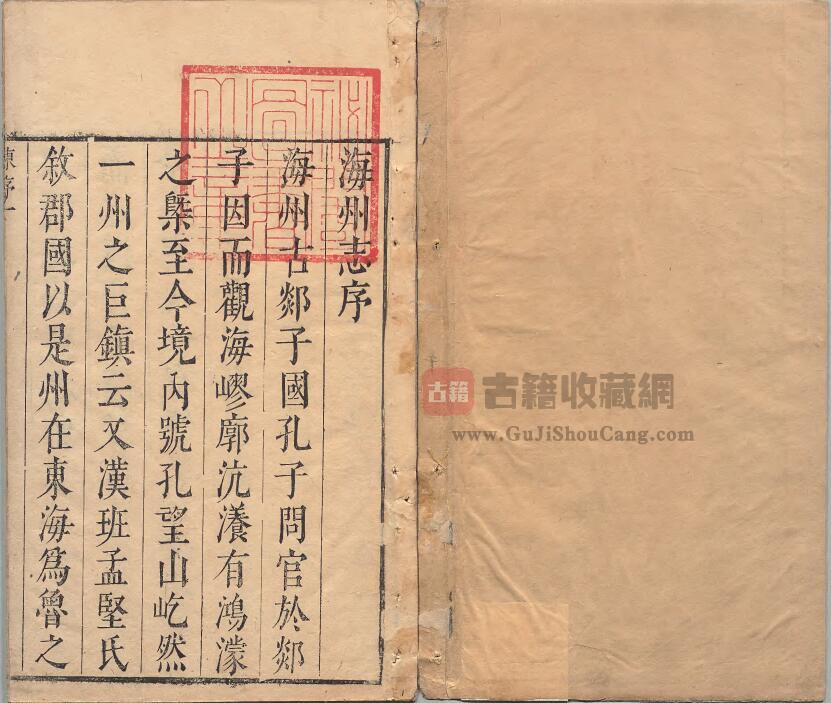 海州志序
海州古郯子國孔子問官於郯
子因而觀海嵺廓沆瀁有鴻濛
之槩至今境內號孔望山屹然
一州之巨鎮云又漢班孟堅氏
敘郡國以是州在東海爲魯之
序一
古籍
古籍收藏網
www.GuJiShouCang.com